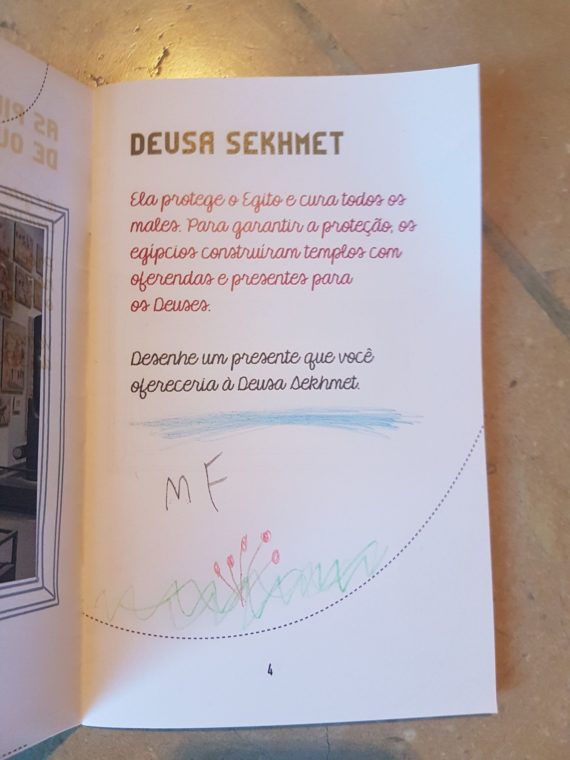 DEUSA SEKHMET
Ela protege o Egito e cura todos os
males. Para garantir a proteção, os
egípcios construíram templos com
oferendas e presentes para
os Deuses.
Desenhe um presente que você
ofereceria à Deusa Sekhmet.
M F
4